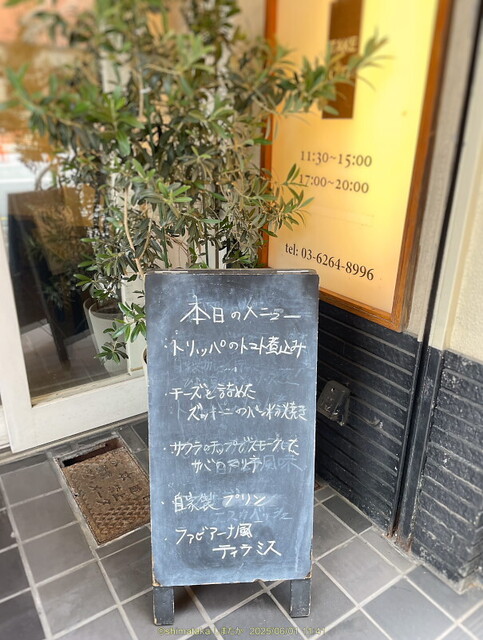 TAKE
11:30~15:00
17:00~20:00
tel: 03-6264-8996
本日のメニュー
・トリッパのトマト煮込み
・チーズを詰めた
ズッキーニのパン粉焼き
・サクラのチップでスモークした
サバ
風味
・自家製プリン
・ファビアーナ風
ティラミス